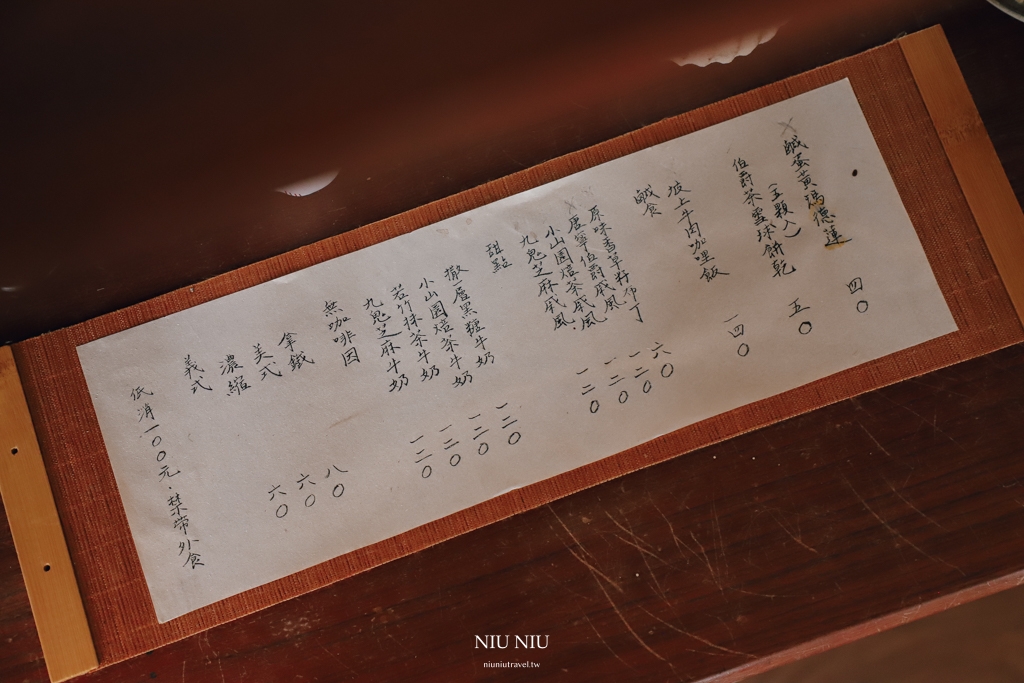 低消一〇〇元．禁帶外食
義式
濃縮 六〇
美式 六〇
拿鐵 八〇
無咖啡因
九鬼芝麻牛奶 一三〇
若竹抹茶牛奶 一二〇
小山園焙茶牛奶 一二〇
撒一層黑糖牛奶 一二〇
甜點
九鬼芝麻戚風 一二〇
小山園焙茶戚風 一二〇
唐寧伯爵戚風 一二〇
原味香草籽布丁 六〇
鹹食
坡上牛肉咖哩飯 一四〇
伯爵茶雪球餅乾 五〇
(五顆入)
鹹蛋黃瑪德蓮 四〇
NIU NIU
niuniutravel.tw